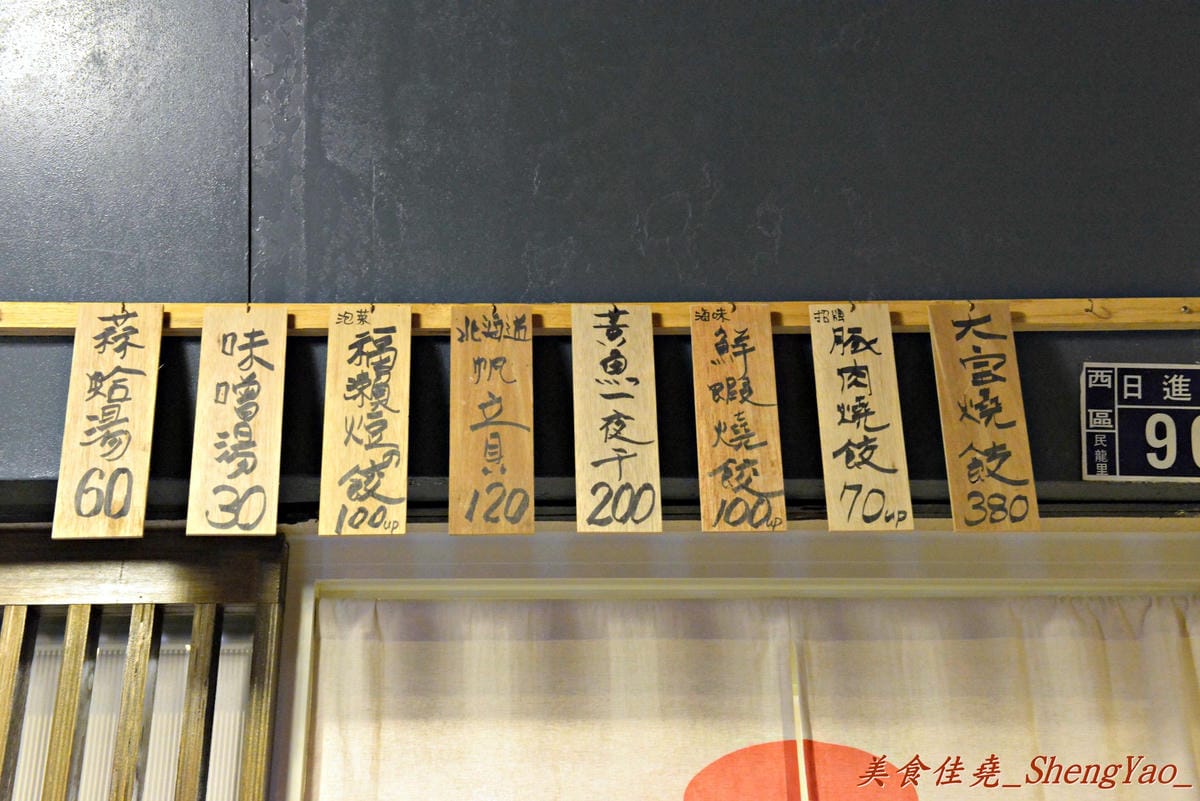 蒜蛤湯
60
味噌湯
30
泡菜
福瀨煌の餃
100up
北海道
帆立貝
120
黃魚一夜干
200
滷味
鮮蝦燒餃
100up
招牌
豚肉燒餃
70up
大宮燒餃
380
西區
民龍里
日進
90
美食佳堯_ShengYao_